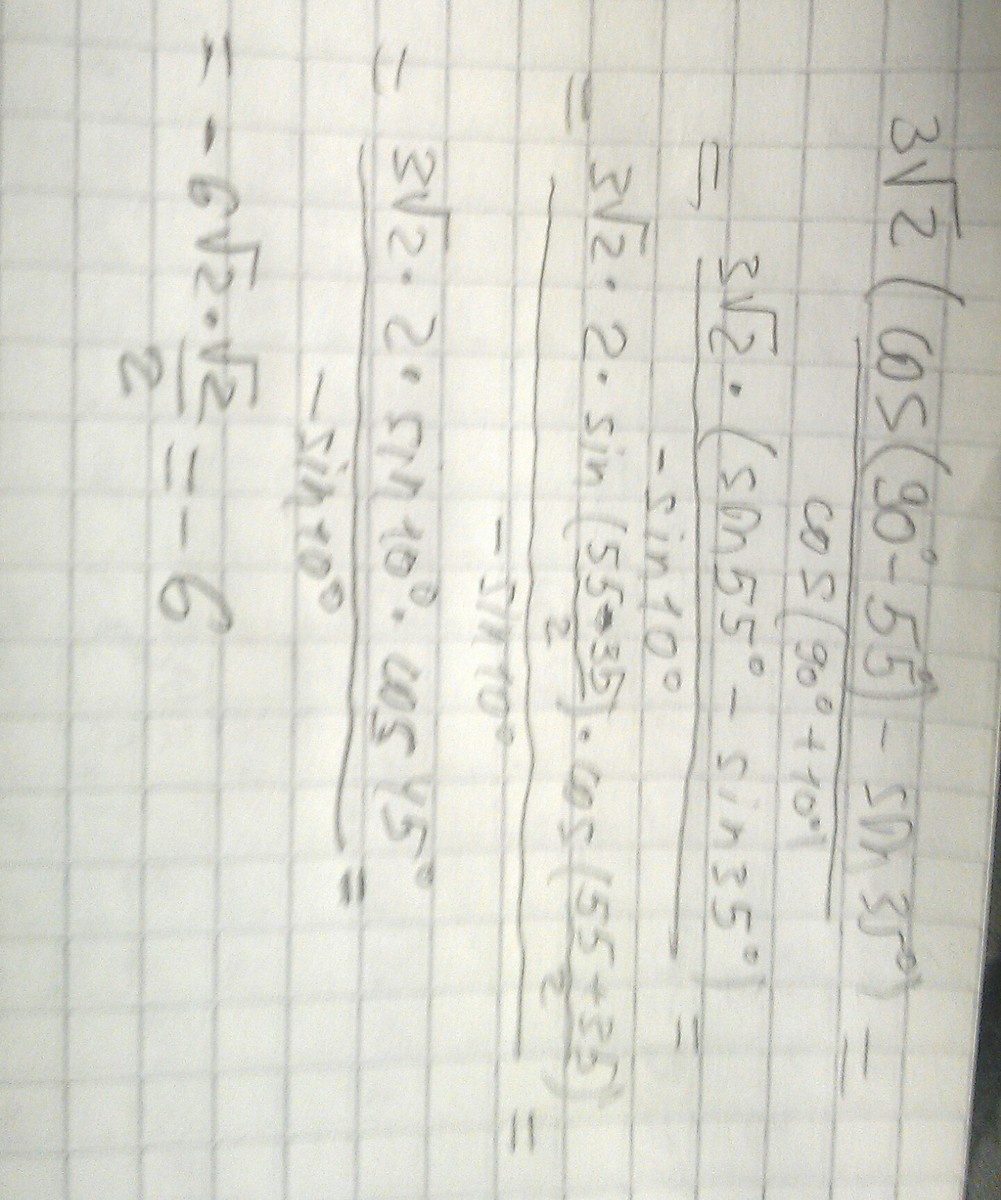 3√2 (cos(90°-55°) - sin 35°) =
cos(90°+10°)
= 3√2 · (sin 55° - sin 35°) =
-sin 10°
= 3√2 · 2 · sin (55-35) · cos (55+35) =
2 2
-sin 10°
= 3√2 · 2 · sin 10° · cos 45° =
-sin 10°
= - 6√2 · √2 = - 6
2